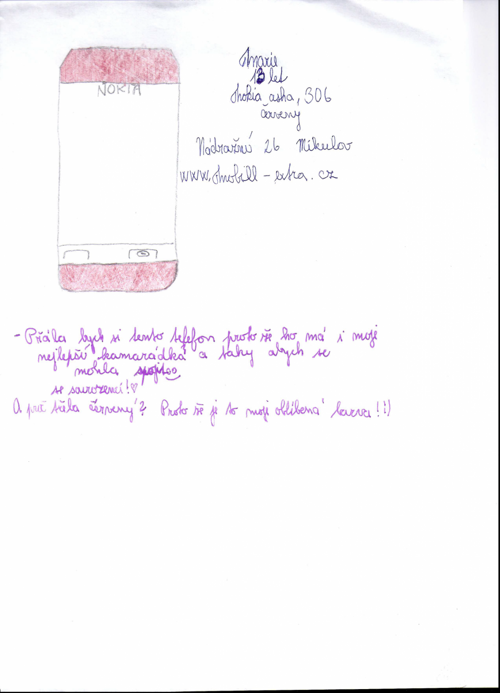 NOKIA
Marie
13 let
Nokia asha, 306
červeny
Nádražní 26 Mikulov
www.Mobill-extra.cz
- Přála bych si tento telefon proto že ho má i moje
nejlepší kamarádka a taky abych se
mohla spojit
se sourozenci!♡
A proč zrovna červený? Proto že je to moji oblíbená barva!!:)